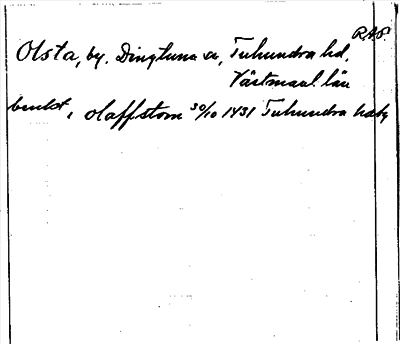 RAP
Olsta, by. Dingtuna sn, Tuhundra hd,
Västmanl. län
benkt, olaffstom 30/10 1431 Tuhundra hæby